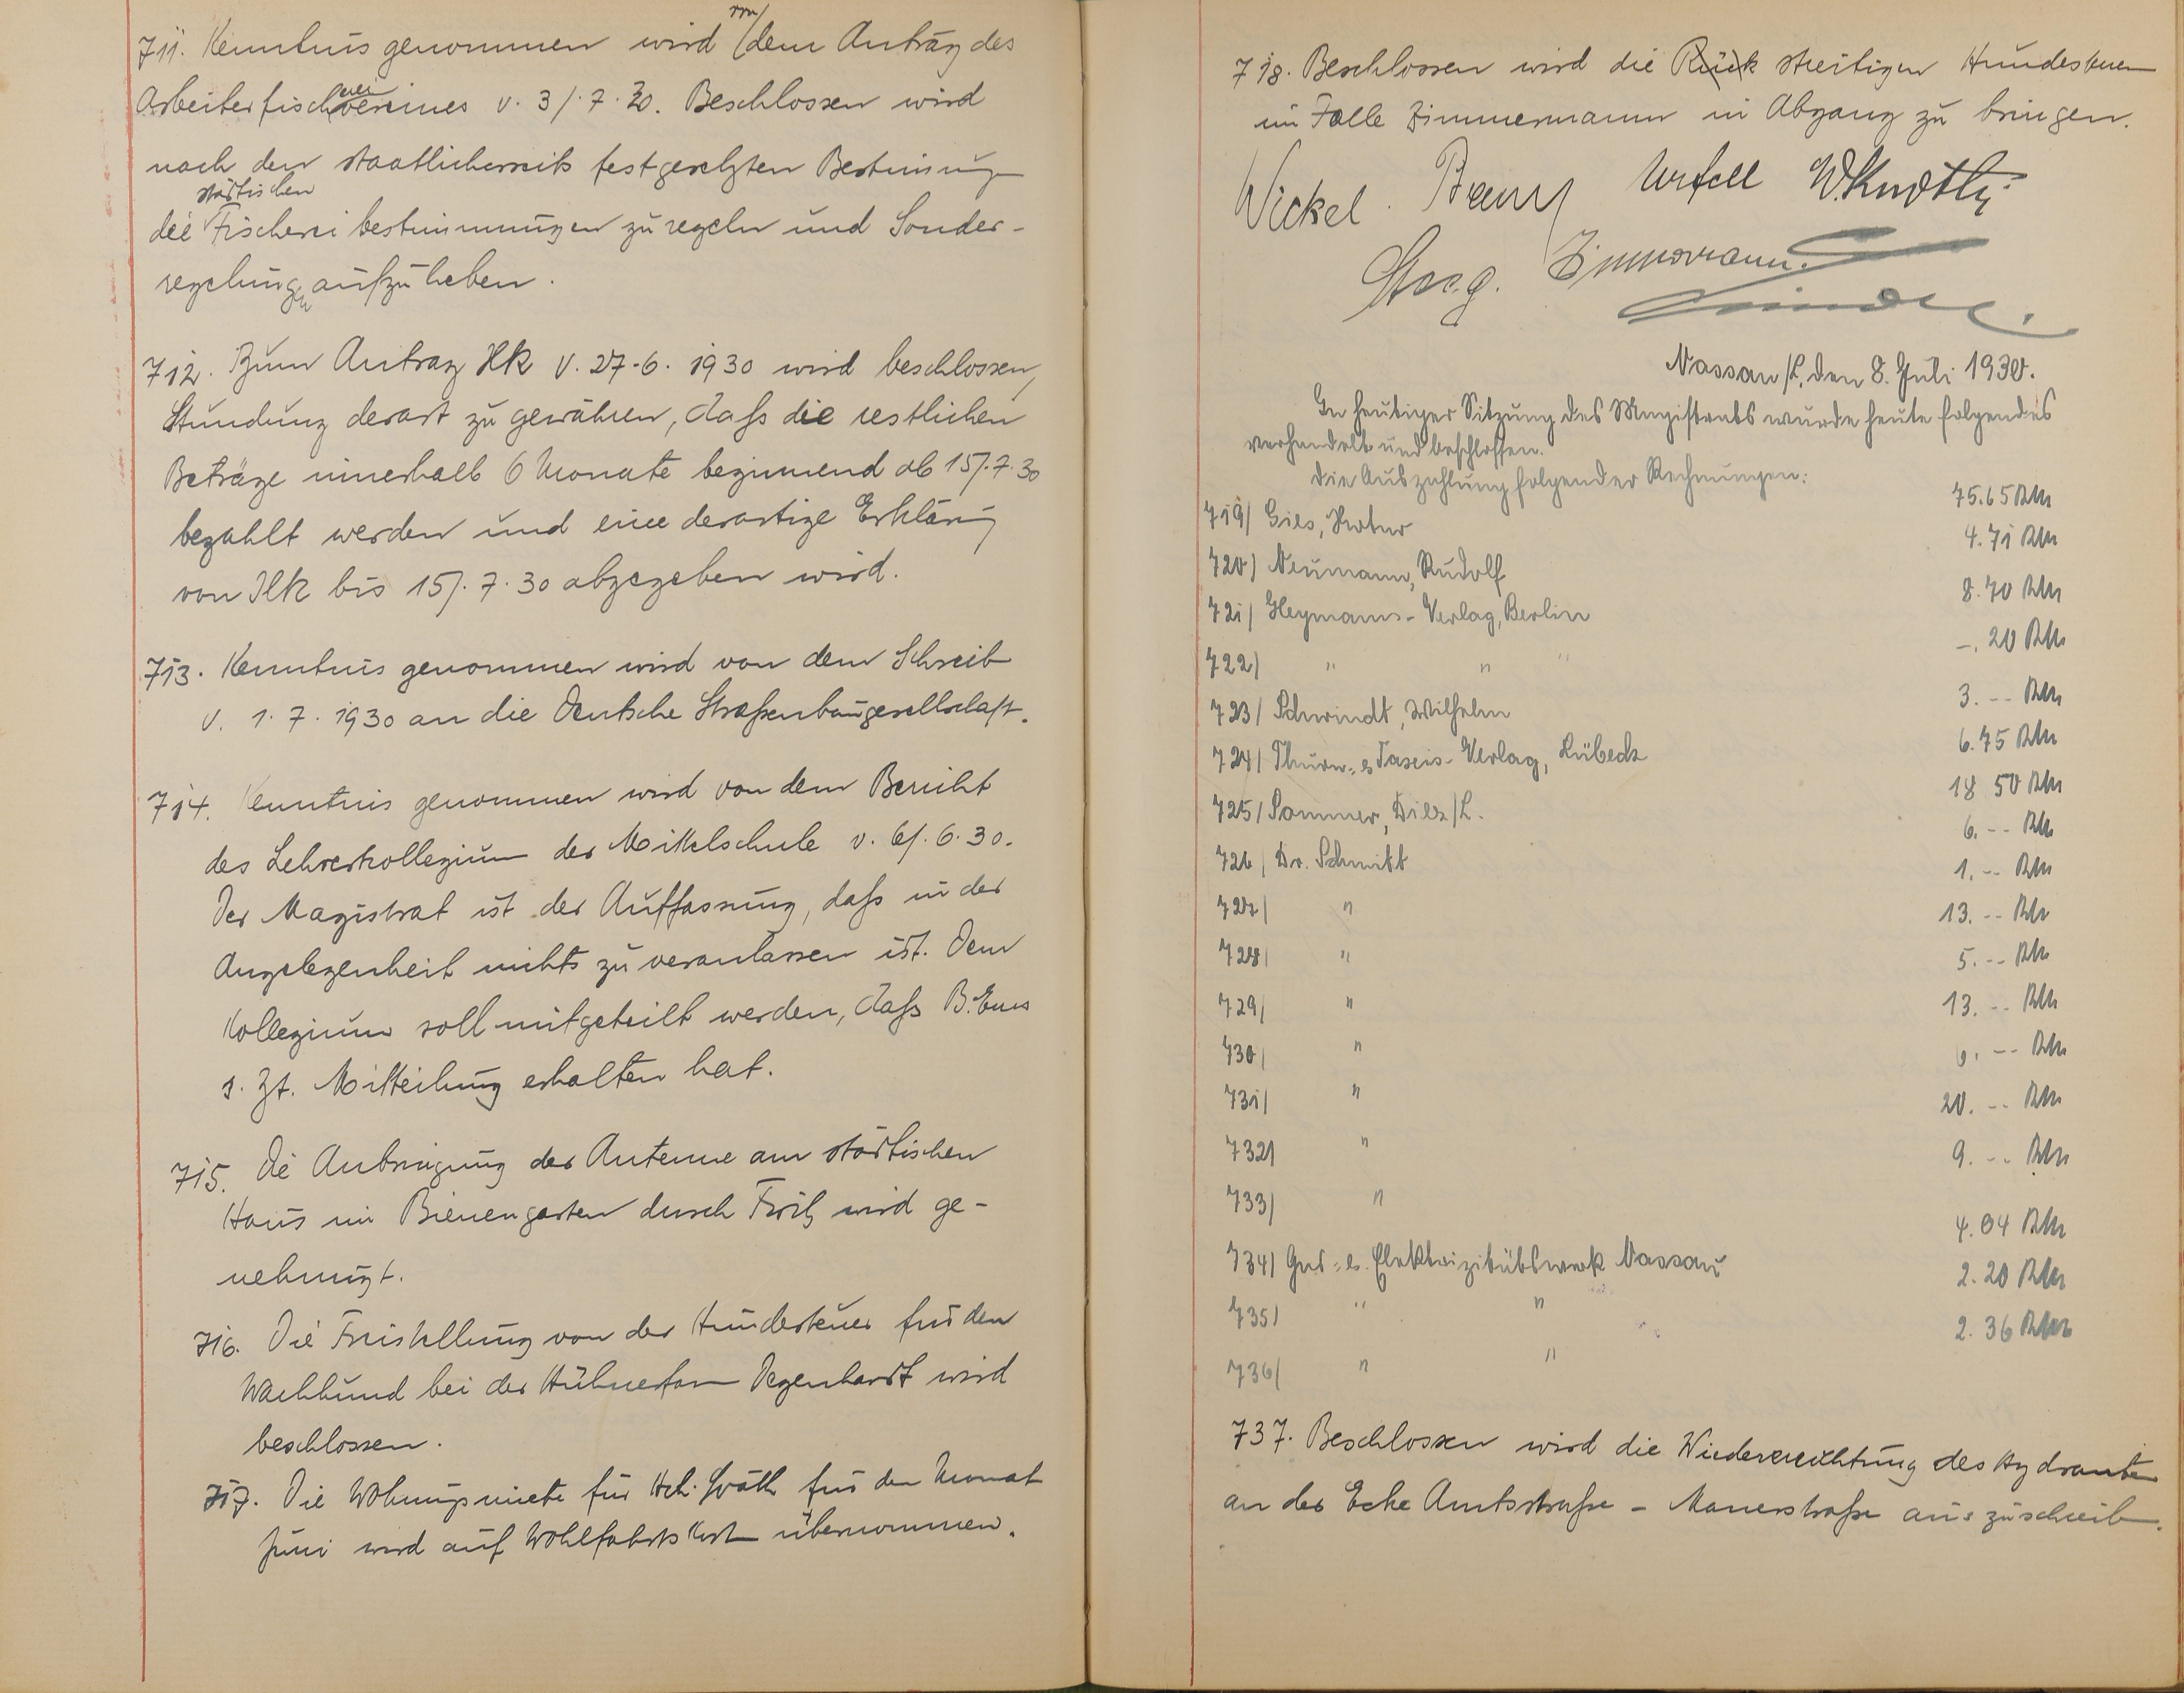 711. Kenntnis genommen wird von dem Antrag des
Arbeiterfischereivereines v. 3/.7.30. Beschlossen wird
nach den staatlicherseits festgesetzten Bestimmungen
die städtischen Fischereibestimmungen zu regeln und Sonder-
regelungen aufzuheben.
712. Zum Antrag Ilk v. 27.6.1930 wird beschlossen,
Stundung derart zu gewähren, daß die restlichen
Beträge innerhalb 6 Monate beginnend ab 15/.7.30
bezahlt werden und eine derartige Erklärung
von Ilk bis 15/.7.30 abgegeben wird.
713. Kenntnis genommen wird von dem Schreiben
v. 1.7.1930 an die Deutsche Straßenbaugesellschaft.
714. Kenntnis genommen wird von dem Bericht
des Lehrerkollegium der Mittelschule v. 6/.6.30.
Der Magistrat ist der Auffassung, daß in der
Angelegenheit nichts zu veranlassen ist. Dem
Kollegium soll mitgeteilt werden, daß B. Ems
s. Zt. Mitteilung erhalten hat.
715. Die Anbringung der Antenne am städtischen
Haus im Bienengarten durch wird ge-
nehmigt.
716. Die Freistellung von der Hundesteuer für den
Wachhund bei der Hühnerfarm Degenhardt wird
beschlossen.
717. Die Wohnungsmiete für Hch. für den Monat
Juni wird auf Wohlfahrtskosten übernommen.
718. Beschlossen wird die Rück streitigen Hundesteuer
im Falle Zimmermann in Abgang zu bringen.
Wickel. W. Knoth
Zimmermann.
Nassau/L, den 8. Juli 1930.
In heutiger Sitzung des Magistrats wurde heute folgendes
verhandelt und beschlossen.
Die Auszahlung folgender Rechnungen:
719/ Gies, 75.65 RM
720) Neumann, Rudolf 4.71 RM
721/ Heymanns-Verlag, Berlin 8.70 RM
722) " " " -.20 RM
723/ Schwindt, Wilhelm 3.-- RM
724/ Thurn- & Taxis-Verlag, Lübeck 6.75 RM
725/ Sommer, Diez/L. 18 50 RM
726/ Dr. Schmitt 6.-- RM
727/ " 1.-- RM
728/ " 13.-- RM
729/ " 5.-- RM
730/ " 13.-- RM
731/ " 6.-- RM
732/ " 20.-- RM
733/ " 9.-- RM
734/ Gas- & Elektrizitätswerk Nassau 4.04 RM
735) " " 2.20 RM
736/ " " 2.36 RM
737. Beschlossen wird die Wiedererrichtung des Hydranten
an der Ecke Amtsstraße - Mauerstraße auszuschreiben.